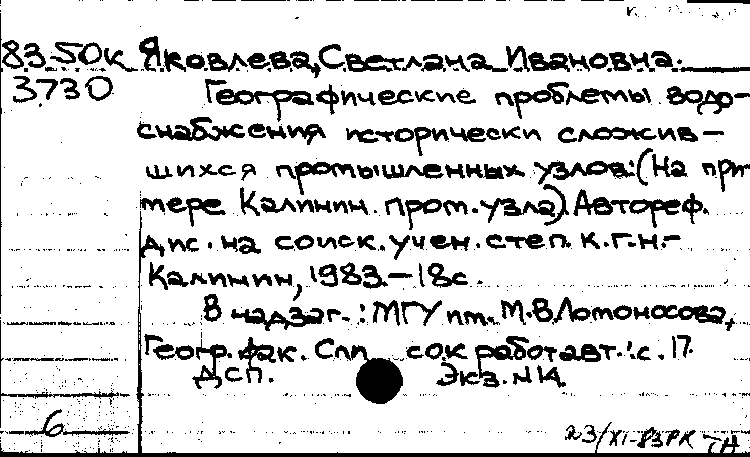 83-50к Яковлева, Светлана Ивановна.
3730 Географические проблемы водо-
снабжения исторически сложив-
шихся промышленных узлов: (На при-
мере Калинин. пром. узла). Автореф.
дис. на соиск. учен. степ. к.г.н.-
Калинин, 1983.-18с.
В надзаг.: МГУ им. М.В.Ломоносова,
Геогр. фак. Спи сок работ авт.: с. 17
ДСП. Экз. N 14.
6 23/XI-83 РК ТН